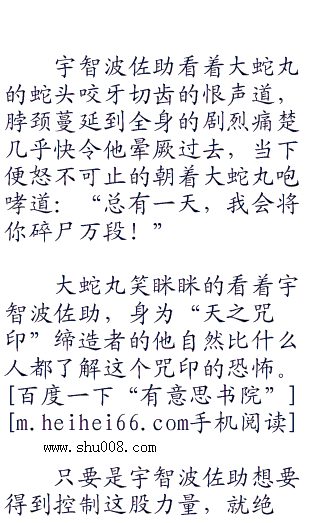 宇智波佐助看着大蛇丸
的蛇头咬牙切齿的恨声道，
脖颈蔓延到全身的剧烈痛楚
几乎快令他晕厥过去，当下
便怒不可止的朝着大蛇丸咆
哮道：“总有一天，我会将
你碎尸万段！”
大蛇丸笑眯眯的看着宇
智波佐助，身为“天之咒
印”缔造者的他自然比什么
人都了解这个咒印的恐怖。
[百度一下“有意思书院”]
[m.heihei66.com手机阅读]
www.shu008.com
只要是宇智波佐助想要
得到控制这股力量，就绝